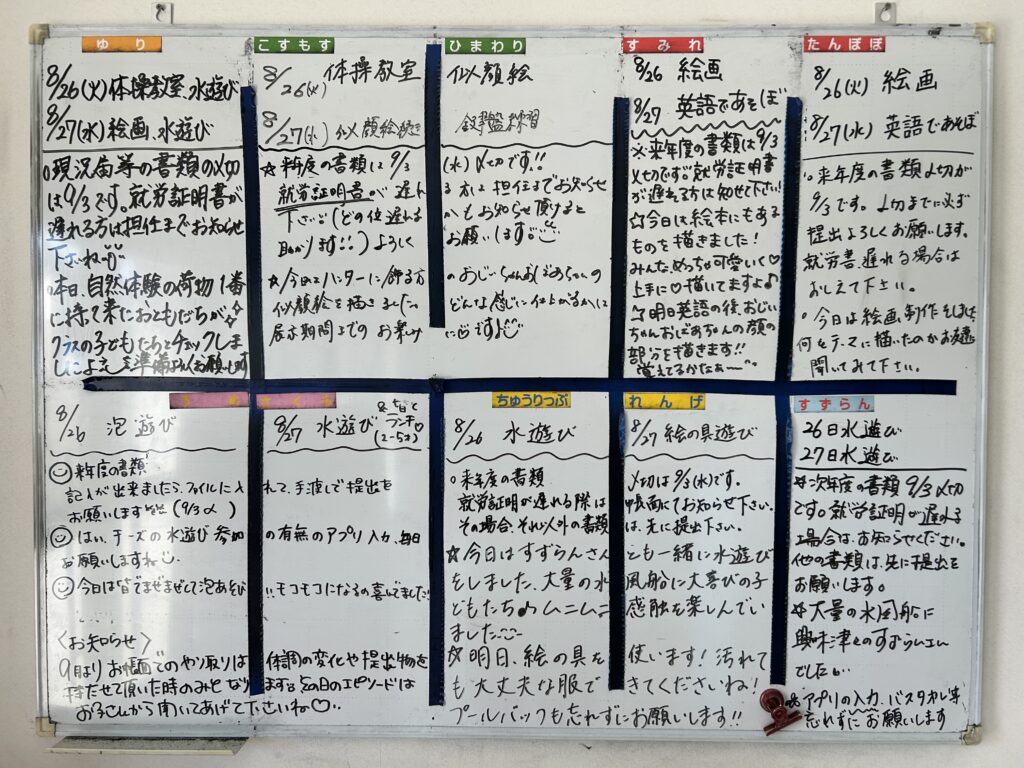 ゆり
8/26(火)体操教室、水遊び
8/27(水)絵画、水遊び
。現況届等の書類の〆切
は9/3です。就労証明書が
遅れる方は担任までお知らせ
下さいね
。本日、自然体験の荷物1番
に持って来たおともだちが
クラスの子どもたちとチェックしま
準備よろしくお願いします
こすもす
8/26(火) 体操教室
8/27(水) 似顔絵続き
ひまわり
似顔絵
練習
☆来年度の書類は 9/3(水)〆切です!!
就労証明書が遅れる方は担任までお知らせ
下さい(どの位遅れるかもお知らせ頂けると
助かります!!)よろしくお願いします
☆今日は 飾る 。おじいちゃんおばあちゃんの
似顔絵を描きました どんな感じに仕上がるかは
展示期間までの お楽しみに ます
すみれ
8/26 絵画
8/27 英語であそぼ
※来年度の書類は9/3
〆切です。就労証明書
が遅れる方は知らせて下さい!
☆今日は絵本にもある
ものを描きました!
みんなめっちゃ可愛いく♡
上手に♡描いてますよ♪
☆明日英語の後、おじい
ちゃんおばあちゃんの顔の
部分を描きます!!
覚えてるかなぁ〜
たんぽぽ
8/26(火) 絵画
8/27(水) 英語であそぼ
。来年度の書類〆切が
9/3です。〆切までに必ず
提出よろしくお願いします。
就労書、遅れる場合は
おしえて下さい。
。今日は絵画、制作をしました
何をテーマに描いたのか
聞いてみて下さい。
8/26 泡遊び
8/27 水遊び
ランチ
(2-5才)
☺来年度の書類
記入が出来ましたら、ファイルに入れて、手渡しで提出を
お願いします (9/3〆)
☺はい、チーズの水遊び参加の有無のアプリ入力、毎日
お願いしますね
☺今日は皆でまぜまぜして泡あそび!!モコモコになるの喜んでました!
〈お知らせ〉
9月より お帳面でのやり取りは体調の変化や提出物を
持たせて頂いた時のみとなります。その日のエピソードは
お子さんから聞いてあげて下さいね♡
ちゅうりっぷ
8/26 水遊び
れんげ
8/27 絵の具遊び
。来年度の書類 〆切は9/3(水)です。
就労証明が遅れる際は 帳面にてお知らせ下さい。
その場合、それ以外の書類は、先に提出下さい。
☆今日はすずらんさんとも一緒に水遊び
をしました。大量の水風船に大喜びの子
どもたち♪ムニムニ感触を楽しんでい
ました
☆明日、絵の具を使います!汚れて
も大丈夫な服できてくださいね!
プールバックも忘れずにお願いします!!
すずらん
26日 水遊び
27日 水遊び
☆次年度の書類 9/3〆切
です。就労証明が遅れる
場合は、お知らせください。
他の書類は先に提出を
お願いします。
☆大量の水風船に
興味津々のすずらんさん
でした
アプリの入力、バスタオル等
忘れずにお願いします